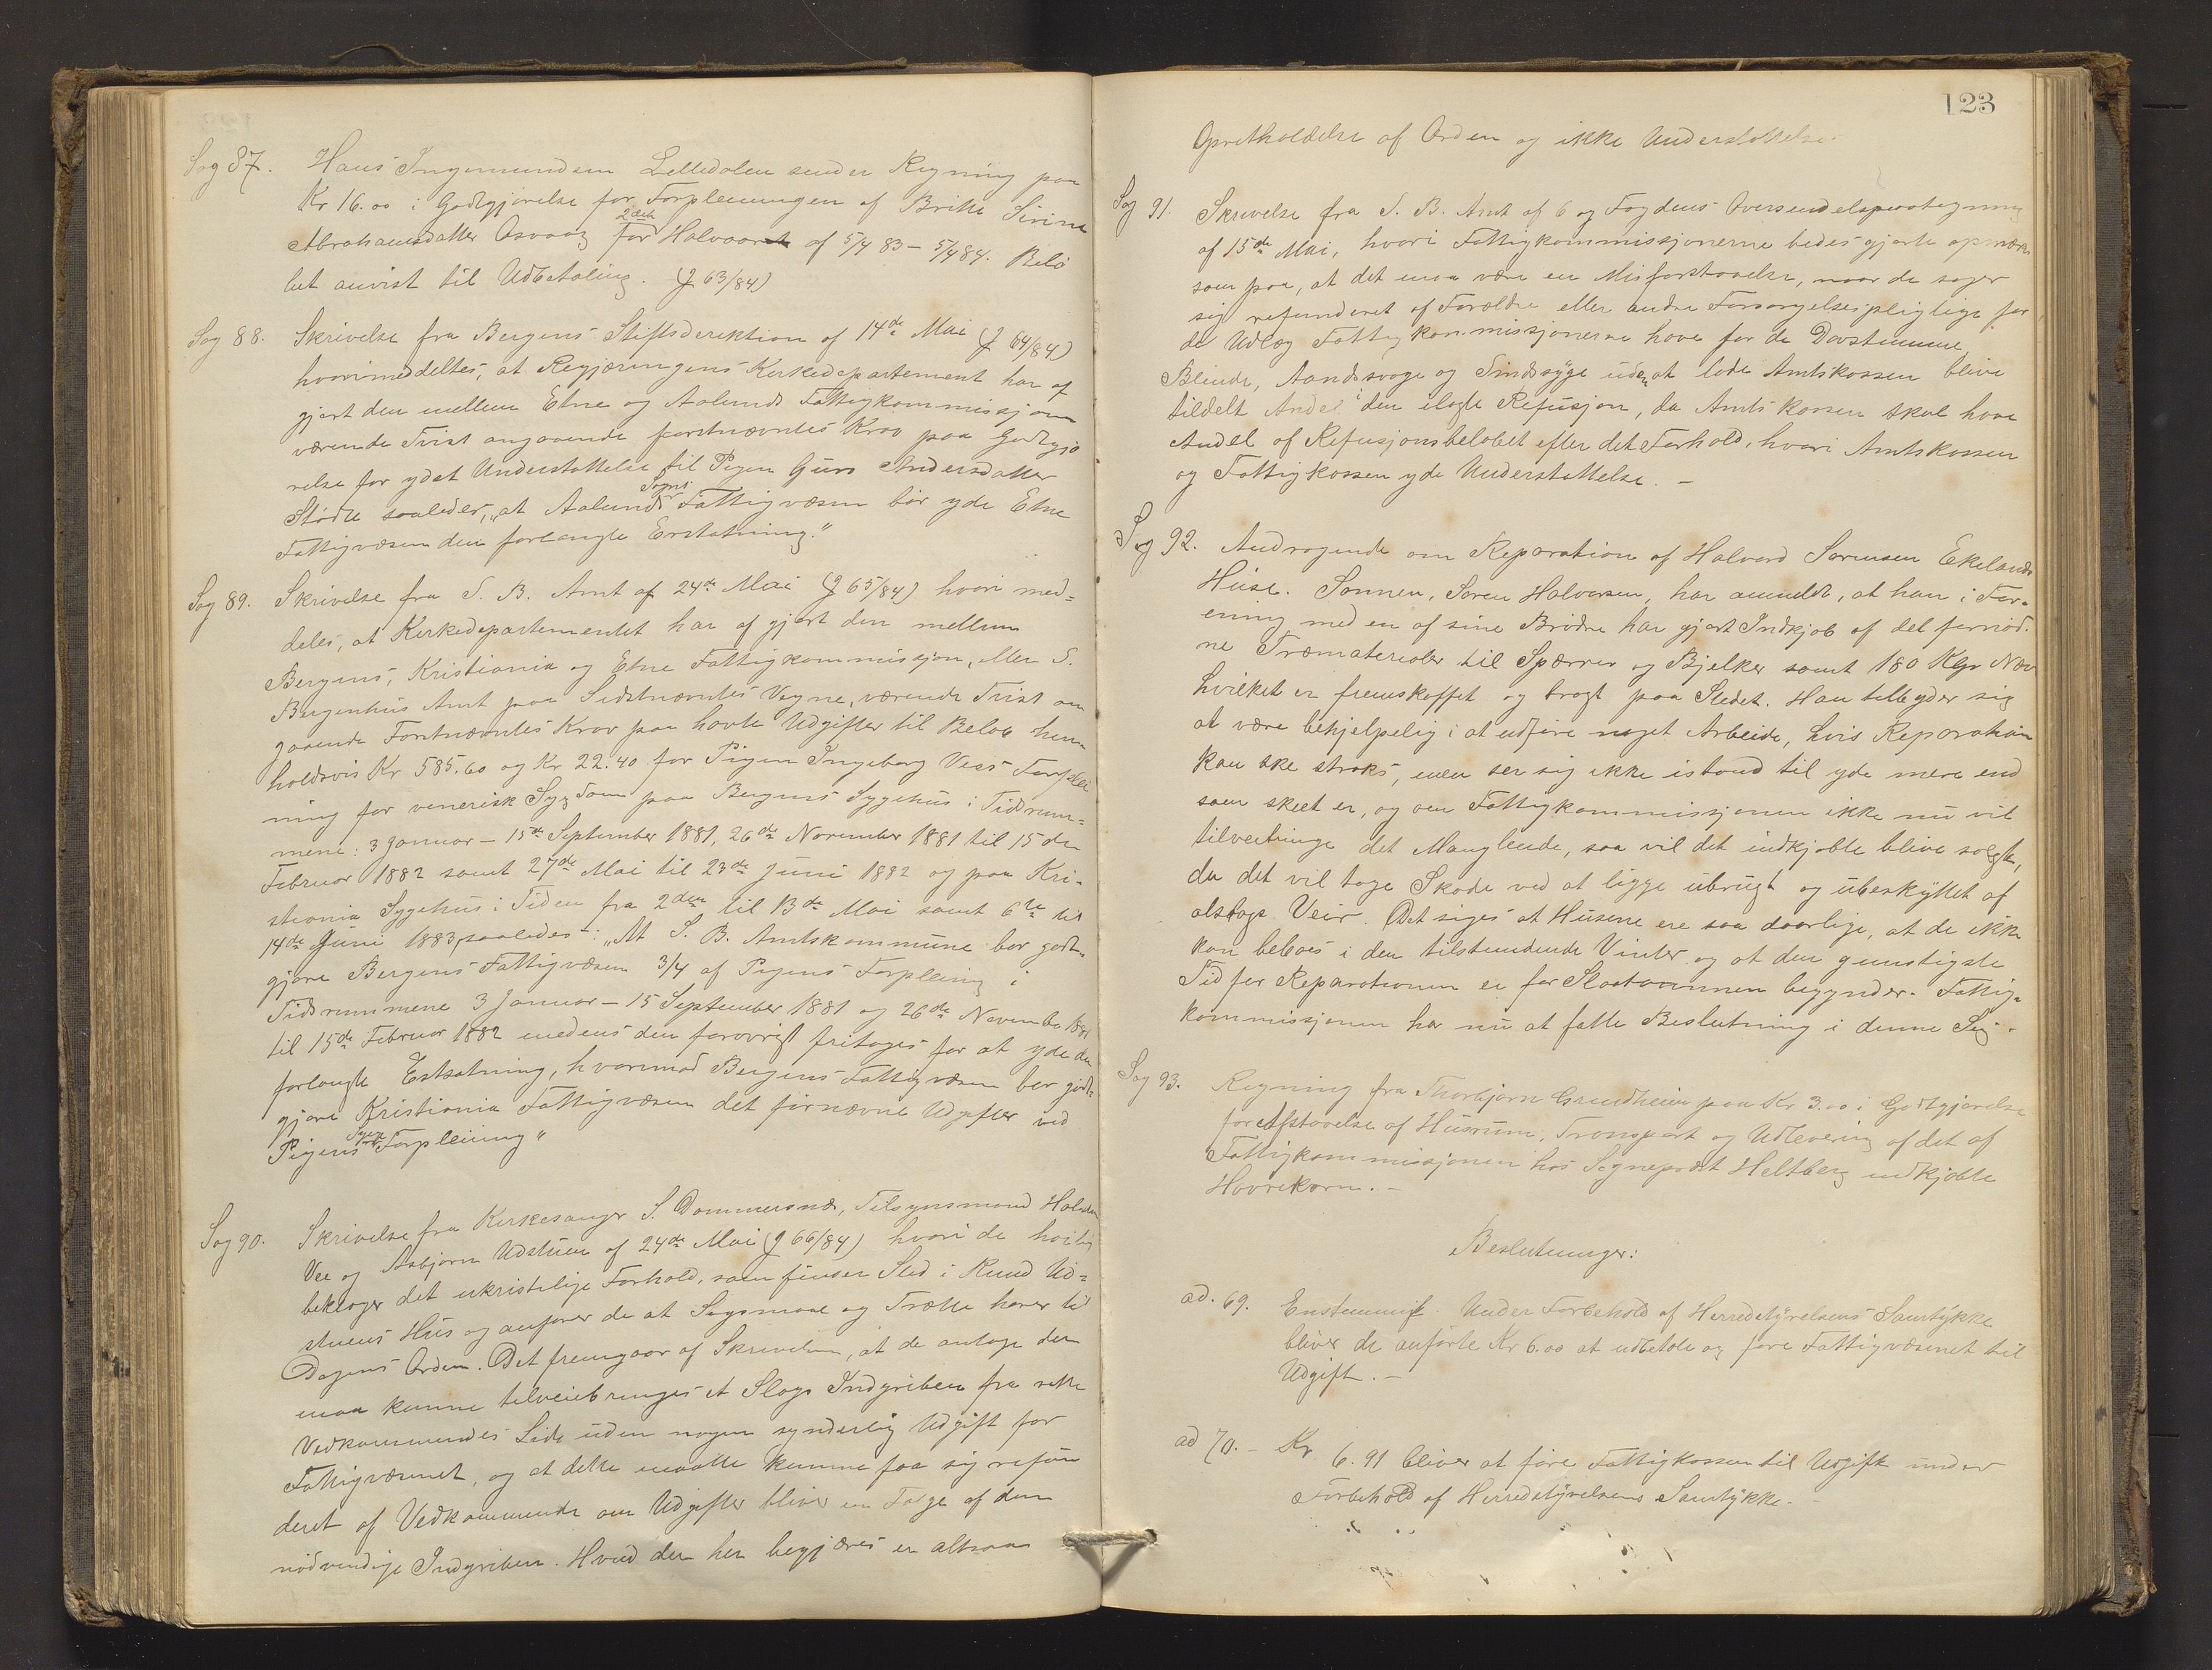 Sag 87. Hans Ingemundsen Lilledalen sender Regning paa
Kr. 16.00 i Godtgjørelse for Forpleiningen af Brithe Sirine
Abrahamsdatter Osvaag for 2det Halvaar af 5/4 83 - 5/4 84. Belö
bet anvist til Udbetaling. (J 63/84)
Sag 88. Skrivelse fra Bergens Stiftsdirektion af 14de Mai (J 64/84)
hvori meddeltes, at Regjæringens Kirkedepartement har af
gjort den mellem Etne og Aalunds Fattigkommissjon
værende Tvist angaaende førstnævntes Krav paa Godtgjö
relse for ydet Understøttelse til Pigen Guro Andersdatter
Stödle saaledes, „at Aalunds Sogns Fattigvæsen bör yde Etne
Fattigvæsen den forlangte Erstatning."
Sag 89. Skrivelse fra S. B. Amt af 24de Mai (J 65/84) hvori med=
deles, at Kirkedepartementet har afgjort den mellem
Bergens, Kristiania og Etne Fattigkommissjon, eller S.
Bergenhus Amt paa Sidstnævntes Vegne, værende Tvist an
gaaende Førstnævntes Krav paa havte Udgifter til Beløb hen
holdsvis Kr. 585.60 og Kr. 22.40 for Pigen Ingeborg Vees Forplei
ning for venerisk Sygdom paa Bergens Sygehus i Tidsrum=
mene: 3 Januar - 15de September 1881, 26de November 1881 til 15de
Februar 1882 samt 27de Mai til 23de Juni 1882 og paa Kri-
stiania Sygehus i Tiden fra 2den til 13de Mai samt 6te til
14de Juni 1883, saaledes: „At S. B. Amtskommune bør godt-
gjøre Bergens Fattigvæsen 3/4 af Pigens Forpleining i
Tidsrummene 3 Januar - 15 September 1881 og 26de November 1881
til 15de Februar 1882 medens den forøvrigt fritages for at yde den
forlangte Estsatning, hvorimod Bergens Fattigvæsen bør godt-
gjøre Kristiania Fattigvæsen det førnævne Udgifter ved
Pigens Forpleining"
Sag 90. Skrivelse fra Kirkesanger S. Dommersnæs, Tilsynsmand Halvdan
Vee og Asbjørn Udstuen af 24de Mai (J 66/84) hvori de høilig
beklager det ukristelige Forhold, som finder Sted i Knud Ud=
stuens Hus og anfører de at Søgsmaal og Trætte hører til
Dagens Orden. Det fremgaar af Skrivelsen, at de antage der
maa kunne tilveiebringes et Slags Indgriben fra rette
Vedkommendes Side uden nogen synderlig Udgift for
Fattigvæsenet, og at dette maatte kunne faa sig refun
deret af Vedkommende om Udgifter bliver en Følge af den
nödvendige Indgriben. Hvad der her begjæres er altsaa
123
Opretholdelse af Orden og ikke Understøttelse.
Sag 91. Skrivelse fra S. B. Amt af 6 og Fogdens Oversendelsespaategning
af 15de Mai, hvori Fattigkommissjonerne bedes gjorte opmærk
som paa, at det maa være en Misforstaaelse, naar de søger
sig refunderet af Forældre eller andre Forsørgelsespligtige for
de Udlæg Fattigkommissjonerne have for de Døvstumme,
Blinde, Aandssvage og Sindssyge uden at lade Amtskassen blive
tildelt Andel i den ilagte Refusjon, da Amtskassen skal have
Andel af Refusjonsbeløbet efter det Forhold, hvori Amtskassen
og Fattigkassen yde Understøttelse. -
Sag 92. Andragende om Reparation af Halvard Sørensen Ekelands
Huse. Sønnen, Søren Halvorsen, har anmeldt, at han i For-
ening med en af sine Brödre har gjort Indkjøb af det fornød.
ne Træmaterialer til Spærrer og Bjelker samt 180 Kgr Næv
hvilket er fremskaffet og bragt paa Stedet. Han tilbyder sig
at være behjelpelig i at udføre noget Arbeide, hvis Reparation
kan ske straks, men ser sig ikke istand til yde mere end
som skeet er, og om Fattigkommissjonen ikke nu vil
tilveiebringe det Manglende, saa vil det indkjøbte blive solgt,
da det vil tage Skade ved at ligge ubrugt og ubeskyttet af
alslags Veir. Det siges at Husene ere saa daarlige, at de ikke
kan beboes i den tilstundende Vinter og at den gunstigste
Tid for Reparationen er før Slaataannen begynder. Fattig-
kommissjonen har nu at fatte Beslutning i denne Sag.
Sag 93. Regning fra Thorbjørn Grindheim paa Kr 3.00 i Godtgjørelse
for Afstaaelse af Husrum, Transport og Udlevering af det af
Fattigkommissjonen hos Sogneprest Heltberg indkjøbte
Havrekorn. -
Beslutninger:
ad. 69. Enstemmigt. Under Forbehold af Herredstyrelsens Samtykke
bliver de anførte Kr 6.00 at udbetale og føre Fattigvæsenet til
Udgift. -
ad 70. - Kr. 6.91 bliver at føre Fattigkassen til Udgift under
Forbehold af Herredstyrelsens Samtykke.